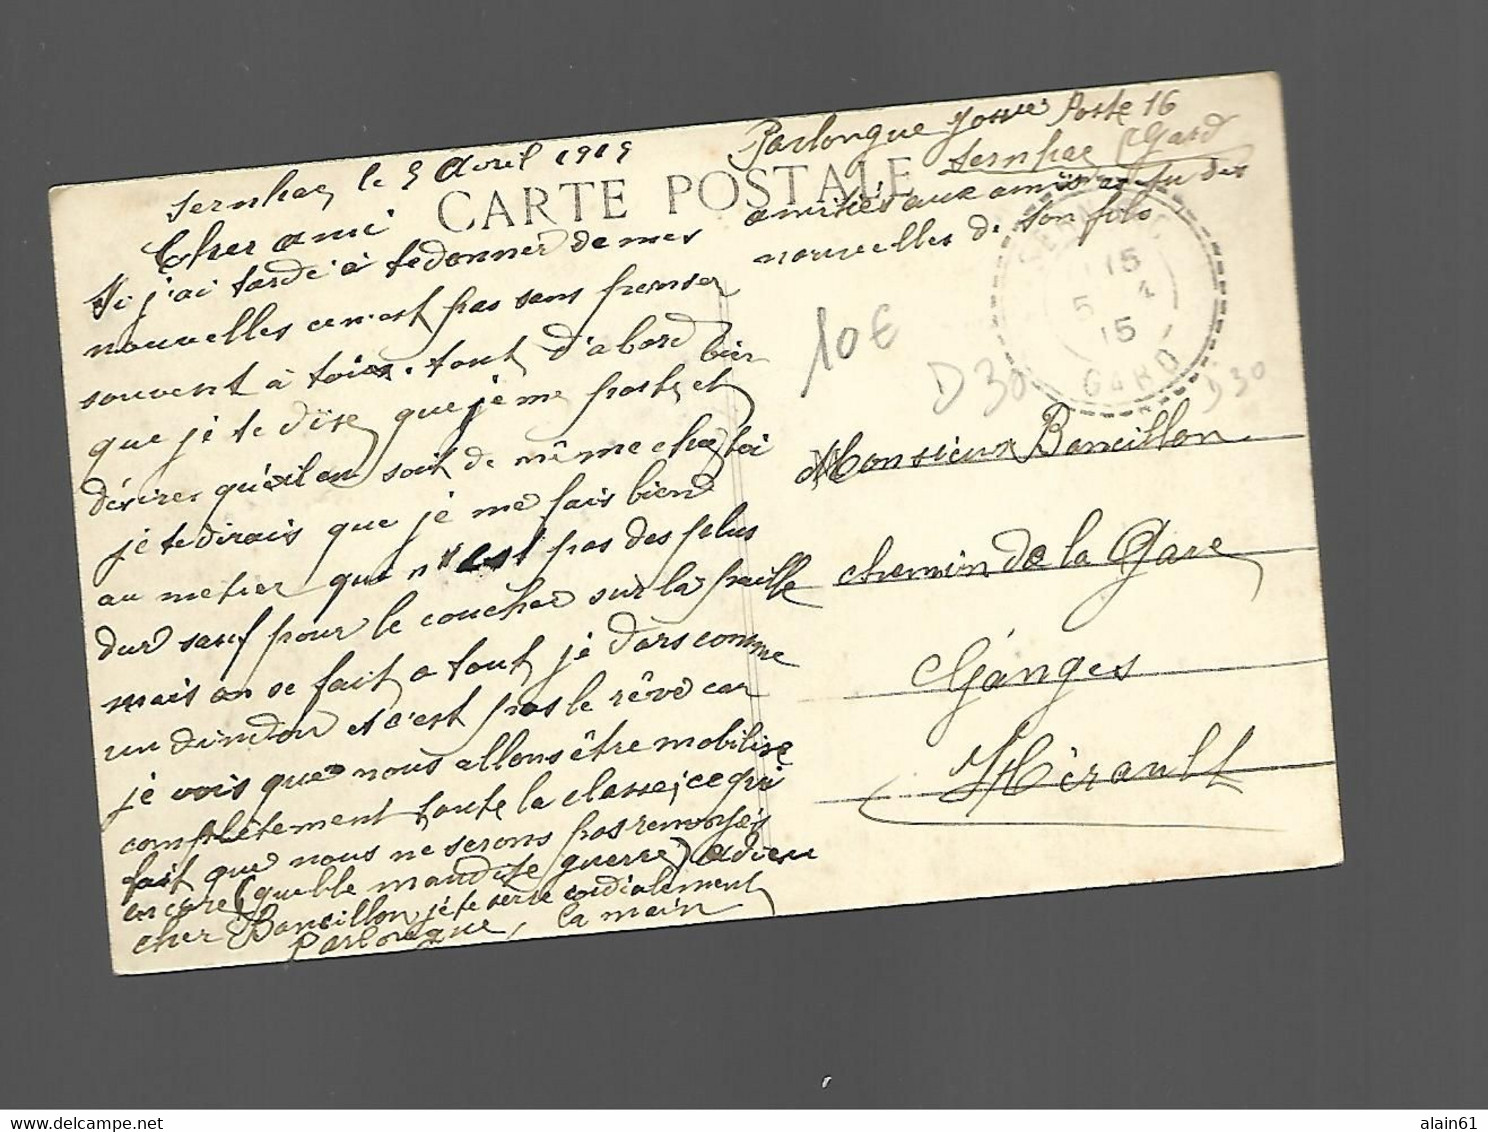 Sernhac le 5 Avril 1915
CARTE POSTALE
Cher ami
Si j'ai tardé à te donner de mes
nouvelles ce n'est pas sans penser
souvent à toi. tout d'abord bien
que je te dise que je me porte et
désires qu'il en soit de même chez toi
je te dirais que je me fais bien
au metier que n'est pas des plus
dur sauf pour le coucher sur la paille
mais on se fait a tout je dors comme
un dindon et c'est pas le rêve car
je vois que nous allons être mobilise
complètement toute la classe, ce qui
fait que nous ne serons pas renvoyés
encore (quelle maudite guerre) adieu
cher Bancillon je te serre cordialement
Parlongue, la main
Parlongue Poste 16
Sernhac Gard
amitiés aux amis des
nouvelles de son fils
15
5 4
15
GARD
10€
D30
D30
Monsieur Bancillon
chemin de la Gare
Ganges
Hérault
alain61